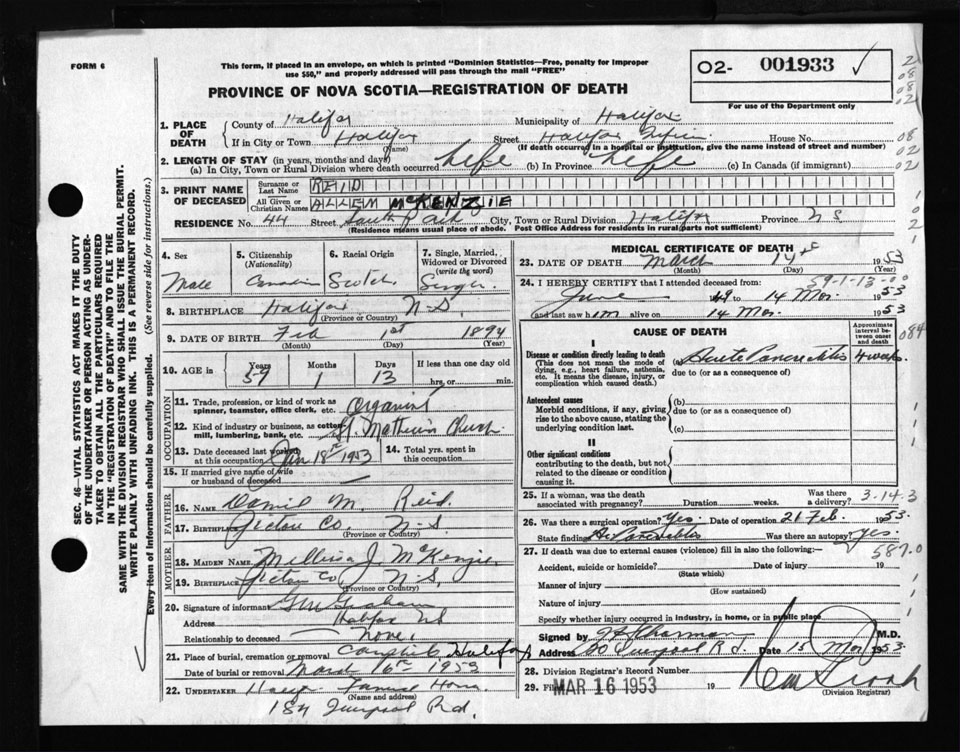 FORM 6
This form, if placed in an envelope, on which is printed "Dominion Statistics—Free, penalty for improper
use $50," and properly addressed will pass through the mail "FREE"
PROVINCE OF NOVA SCOTIA—REGISTRATION OF DEATH
O2- 001933 ✓
For use of the Department only
2
08
08
02
1. PLACE OF DEATH
County of Halifax Municipality of Halifax
If in City or Town Halifax Street Halifax House No.
(Name) (If death occurred in a hospital or institution, give the name instead of street and number)
08
02
02
2. LENGTH OF STAY (in years, months and days)
(a) In City, Town or Rural Division where death occurred life (b) In Province life (c) In Canada (if immigrant)
3. PRINT NAME OF DECEASED
Surname or Last Name REID
All Given or Christian Names ALLEN McKENZIE
RESIDENCE No. 44 Street South Park City, Town or Rural Division Halifax Province N S
(Residence means usual place of abode. Post Office Address for residents in rural parts not sufficient)
1
0
2
4. Sex Male
5. Citizenship (Nationality) Canadian
6. Racial Origin Scotch
7. Single, Married, Widowed or Divorced (write the word) Single
8. BIRTHPLACE Halifax N-S.
(Province or Country)
9. DATE OF BIRTH Feb 1st 1894
(Month) (Day) (Year)
10. AGE in Years 59 Months 1 Days 13 If less than one day old hrs. or min.
OCCUPATION
11. Trade, profession, or kind of work as spinner, teamster, office clerk, etc. Organist
12. Kind of industry or business, as cotton mill, lumbering, bank, etc. St. Matthew's Church
13. Date deceased last worked at this occupation Jan 18th 1953
14. Total yrs. spent in this occupation
15. If married give name of wife or husband of deceased
FATHER
16. Name Daniel M. Reid.
17. Birthplace Pictou Co. N-S.
(Province or Country)
MOTHER
18. MAIDEN NAME J. McKenzie
19. BIRTHPLACE Pictou Co N-S.
(Province or Country)
20. Signature of informant Graham
Address Halifax NS
Relationship to deceased None.
21. Place of burial, cremation or removal Halifax
Date of burial or removal March 16th 1953
22. UNDERTAKER
(Name and address)
Rd.
MEDICAL CERTIFICATE OF DEATH
23. DATE OF DEATH March 14th 1953
(Month) (Day) (Year)
59-1-13
24. I HEREBY CERTIFY that I attended deceased from:
June 1949 to 14 Mar. 1953
and last saw him alive on 14 Mar. 1953
CAUSE OF DEATH
Approximate interval between onset and death
084
I
Disease or condition directly leading to death
(This does not mean the mode of dying, e.g., heart failure, asthenia, etc. It means the disease, injury, or complication which caused death.)
(a) Acute Pancreatitis 4 weeks.
due to (or as a consequence of)
Antecedent causes
Morbid conditions, if any, giving rise to the above cause, stating the underlying condition last.
(b)
due to (or as a consequence of)
(c)
II
Other significant conditions
contributing to the death, but not related to the disease or condition causing it.
25. If a woman, was the death associated with pregnancy? Duration weeks. Was there a delivery?
3-14.3
26. Was there a surgical operation? Yes. Date of operation 21 Feb. 1953.
State findings Ac Pancreatitis Was there an autopsy? Yes.
587.0
27. If death was due to external causes (violence) fill in also the following:—
Accident, suicide or homicide? Date of injury 19
(State which)
Manner of injury
(How sustained)
Nature of injury
Specify whether injury occurred in industry, in home, or in public place
Signed by M.D.
Address Rd. Date 15 Mar 1953.
28. Division Registrar's Record Number
29. Filed MAR 16 1953 19
(Division Registrar)
SEC. 46—VITAL STATISTICS ACT MAKES IT THE DUTY
OF THE UNDERTAKER OR PERSON ACTING AS UNDER-
TAKER TO OBTAIN ALL THE PARTICULARS REQUIRED
IN THE "REGISTRATION OF DEATH" AND TO FILE THE
SAME WITH THE DIVISION REGISTRAR WHO SHALL ISSUE THE BURIAL PERMIT.
WRITE PLAINLY WITH UNFADING INK. THIS IS A PERMANENT RECORD.
Every item of information should be carefully supplied. (See reverse side for instructions.)